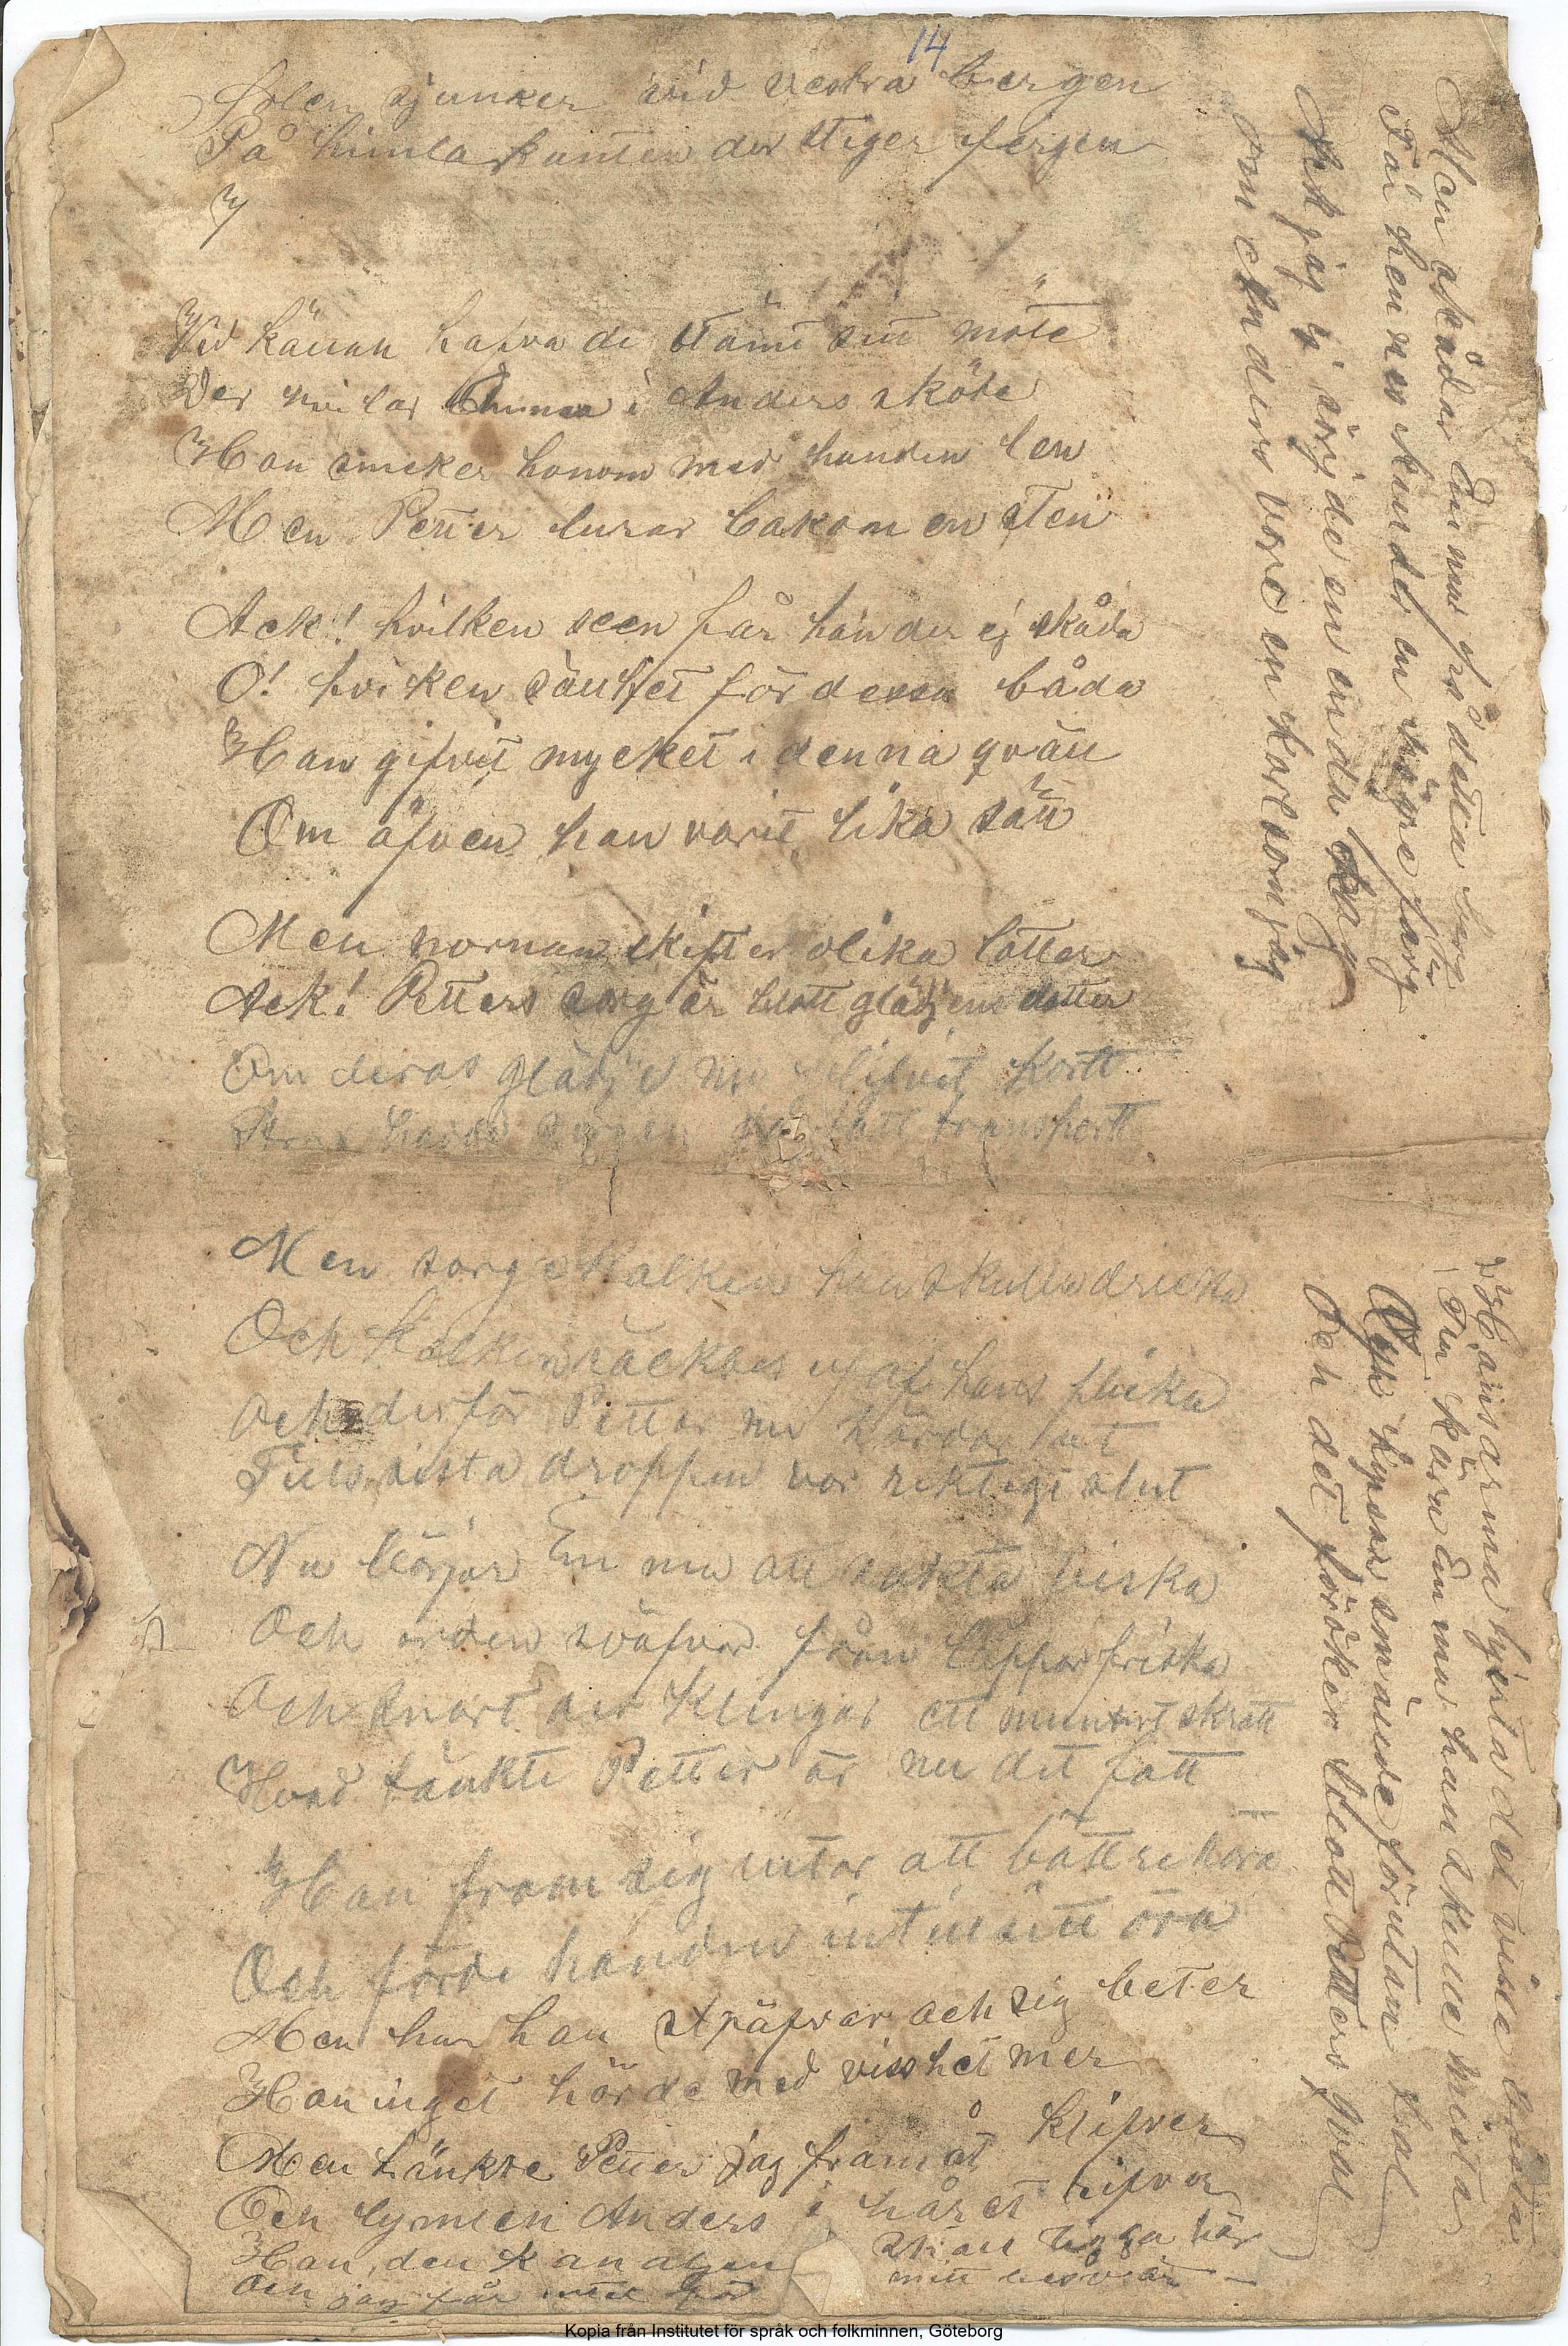 14
Solen sjunker vid vestra bergen
På himlaskanten der stiger fergen
Vid källan hafva de stämt sitt möte
Der hvilar Emma i Anders sköte
Hon smeker honom med handen len
Men Petter lurar bakom en sten
Ack! hvilken scen får han der ej skåda
O! hvilken sällhet för dessa båda
Han gifvit mycket i denna qväll
Om äfven han varit lika säll
Men nornan skifter olika lotter
Ack! Petters sorg är blott glädjens dotter
Om deras glädje nu blifvit kort
hade sorgen transport
Men sorgekalken han skulle dricka
Och kalken räcktes af hans flicka
Och derför Petter nu
Tills sista droppen var riktigt slut
Nu börjar Emma att sakta hviska
Och orden sväfvar från läppar friska
Och snart der klingar ett muntert skratt
Hvad tänkte Petter är nu det fatt
Han fram sig lutar att bättre höra
Och förde handen intill sitt öra
Men hur han sträfvar och sig beter
Han inget hörde med visshet mer
Men tänkte Petter jag framåt klifver
Och lymlen Anders i håret rifver
Han, den kanaljen ligga här
Och jag får intet för mitt besvär
Men skådar Emma på detta berg
Får hennes kinder en högre färg
Ack jag ej sörjde en enda dag
Om Anders vore en karl som jag
Hans arma hjerta det ville brista
Tin kära Emma han skulle mista
Och kyssar smällde förutan tal
Och det föröker blott Petters qval
Kopia från Institutet för språk och folkminnen, Göteborg